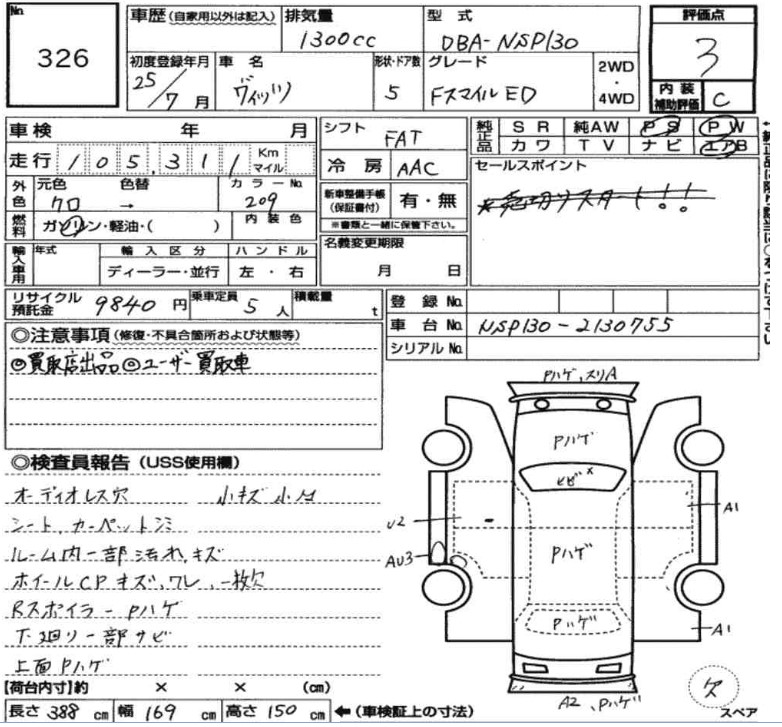 No. 326
車歴 (自家用以外は記入) 排気量 1300cc 型式 DBA-NSP130 評価点 3
初度登録年月 25/7月 車名 ヴィッツ 形状・ドア数 5 グレード FスマイルED 2WD・4WD 内装補助評価 C
車検 年 月 シフト FAT 純正品 SR 純AW PS PW
走行 105,311 Km マイル 冷房 AAC カワ TV ナビ エアB
外色 元色 クロ 色替 → カラーNo. 209 新車整備手帳(保証書付) 有・無 ※書類と一緒に保管下さい。
セールスポイント
★売切りスタート!!
燃料 ガソリン・軽油・( ) 内装色 名義変更期限 月 日
輸入車用 年式 輸入区分 ディーラー・並行 ハンドル 左・右
リサイクル預託金 9840円 乗車定員 5人 積載量 t 登録No.
車台No. NSP130-2130755
シリアルNo.
◎注意事項 (修復・不具合箇所および状態等)
◎買取店出品◎ユーザー買取車
◎検査員報告 (USS使用欄)
オーディオレス穴 小キズ小凹
シート、カーペットシミ
ルーム内一部汚れ、キズ
ホイールCPキズ、ワレ、一枚欠
Rスポイラー Pハゲ
下廻り一部サビ
上面Pハゲ
Pハゲ、スリA
Pハゲ
ヒビ×
U2
A1
AU3
Pハゲ
Pハゲ
A1
A2、Pハゲ
欠
スペア
【荷台内寸】約 × × (cm)
長さ 388 cm 幅 169 cm 高さ 150 cm ←(車検証上の寸法)